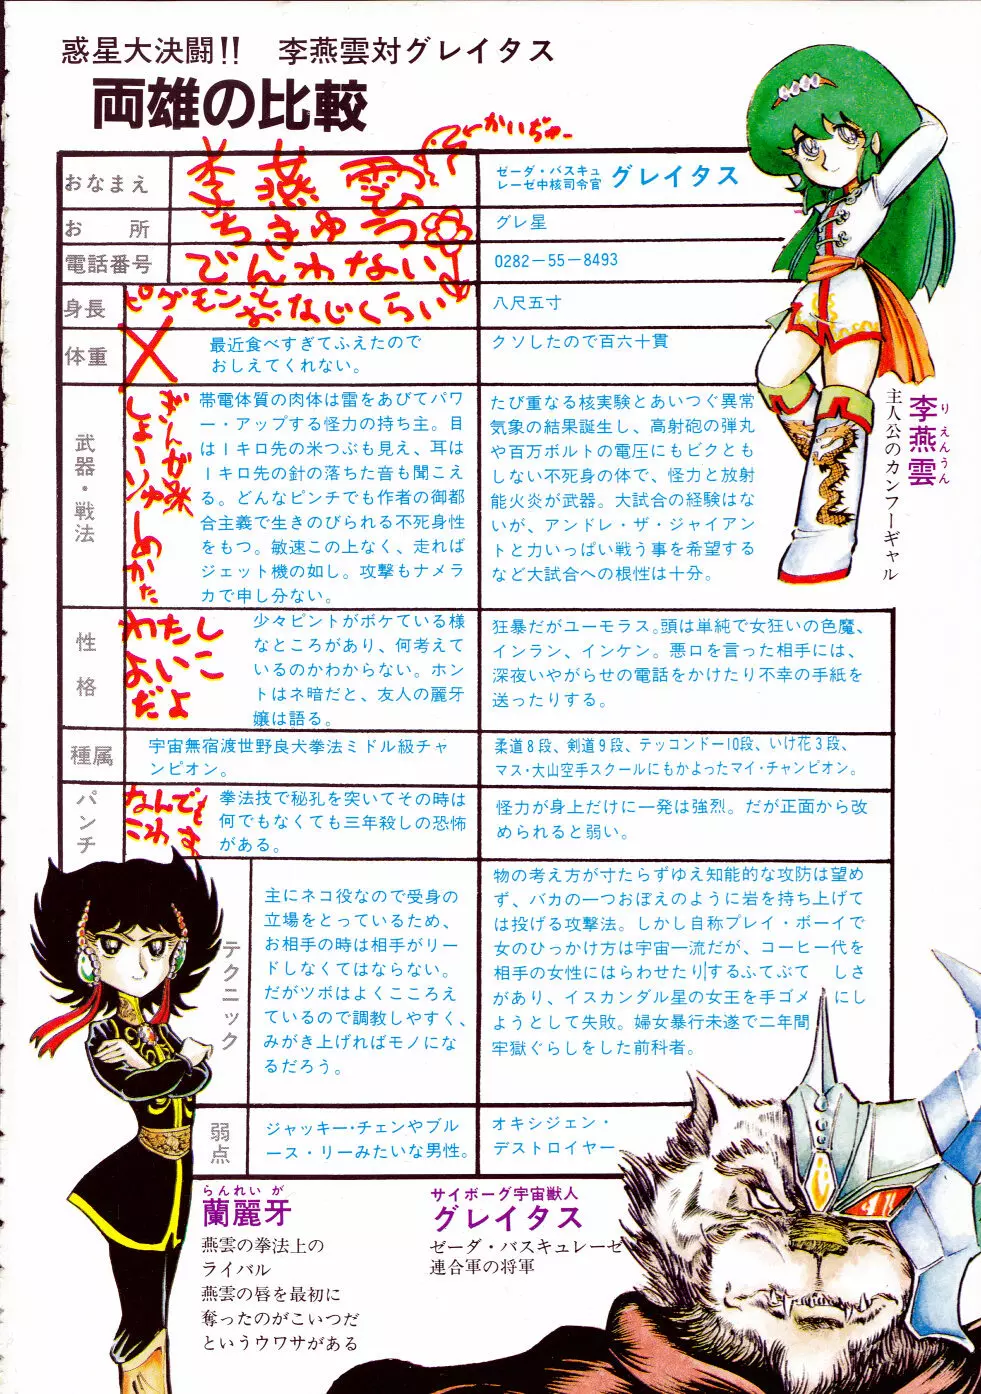 惑星大決闘!!　李燕雲対グレイタス
両雄の比較
←かいぢゅー
おなまえ
李燕雲
ゼーダ・バスキュ
レーゼ中核司令官 グレイタス
お所
ちきゅう
グレ星
電話番号
でんわない
0282-55-8493
身長
ピグモンと
おなじくらい
八尺五寸
体重
最近食べすぎてふえたので
おしえてくれない。
クソしたので百六十貫
武器・戦法
ぎんが
しょーりゅー
しめかた
帯電体質の肉体は雷をあびてパワ
ー・アップする怪力の持ち主。目
は1キロ先の米つぶも見え、耳は
1キロ先の針の落ちた音も聞こえ
る。どんなピンチでも作者の御都
合主義で生きのびられる不死身性
をもつ。敏速この上なく、走れば
ジェット機の如し。攻撃もナメラ
カで申し分ない。
たび重なる核実験とあいつぐ異常
気象の結果誕生し、高射砲の弾丸
や百万ボルトの電圧にもビクとも
しない不死身の体で、怪力と放射
能火炎が武器。大試合の経験はな
いが、アンドレ・ザ・ジャイアン
トと力いっぱい戦う事を希望する
など大試合への根性は十分。
性格
わたし
よいこ
だよ
少々ピントがボケている様
なところがあり、何考えて
いるのかわからない。ホン
トはネ暗だと、友人の麗牙
嬢は語る。
狂暴だがユーモラス。頭は単純で女狂いの色魔、
インラン、インケン。悪口を言った相手には、
深夜いやがらせの電話をかけたり不幸の手紙を
送ったりする。
種属
宇宙無宿渡世野良犬拳法ミドル級チャ
ンピオン。
柔道8段、剣道9段、テッコンドー10段、いけ花3段、
マス・大山空手スクールにもかよったマイ・チャンピオン。
パンチ
なんでも
こわす
拳法技で秘孔を突いてその時は
何でもなくても三年殺しの恐怖
がある。
怪力が身上だけに一発は強烈。だが正面から攻
められると弱い。
テクニック
主にネコ役なので受身の
立場をとっているため、
お相手の時は相手がリー
ドしなくてはならない。
だがツボはよくこころえ
ているので調教しやすく、
みがき上げればモノにな
るだろう。
物の考え方が寸たらずゆえ知能的な攻防は望め
ず、バカの一つおぼえのように岩を持ち上げて
は投げる攻撃法。しかし自称プレイ・ボーイで
女のひっかけ方は宇宙一流だが、コーヒー代を
相手の女性にはらわせたりするふてぶて　しさ
があり、イスカンダル星の女王を手ゴメ　にし
ようとして失敗。婦女暴行未遂で二年間
牢獄ぐらしをした前科者。
弱点
ジャッキー・チェンやブル
ース・リーみたいな男性。
オキシジェン・
デストロイヤー
りえんうん
李燕雲
主人公のカンフーギャル
らんれいが
蘭麗牙
燕雲の拳法上の
ライバル
燕雲の唇を最初に
奪ったのがこいつだ
というウワサがある
サイボーグ宇宙獣人
グレイタス
ゼーダ・バスキュレーゼ
連合軍の将軍